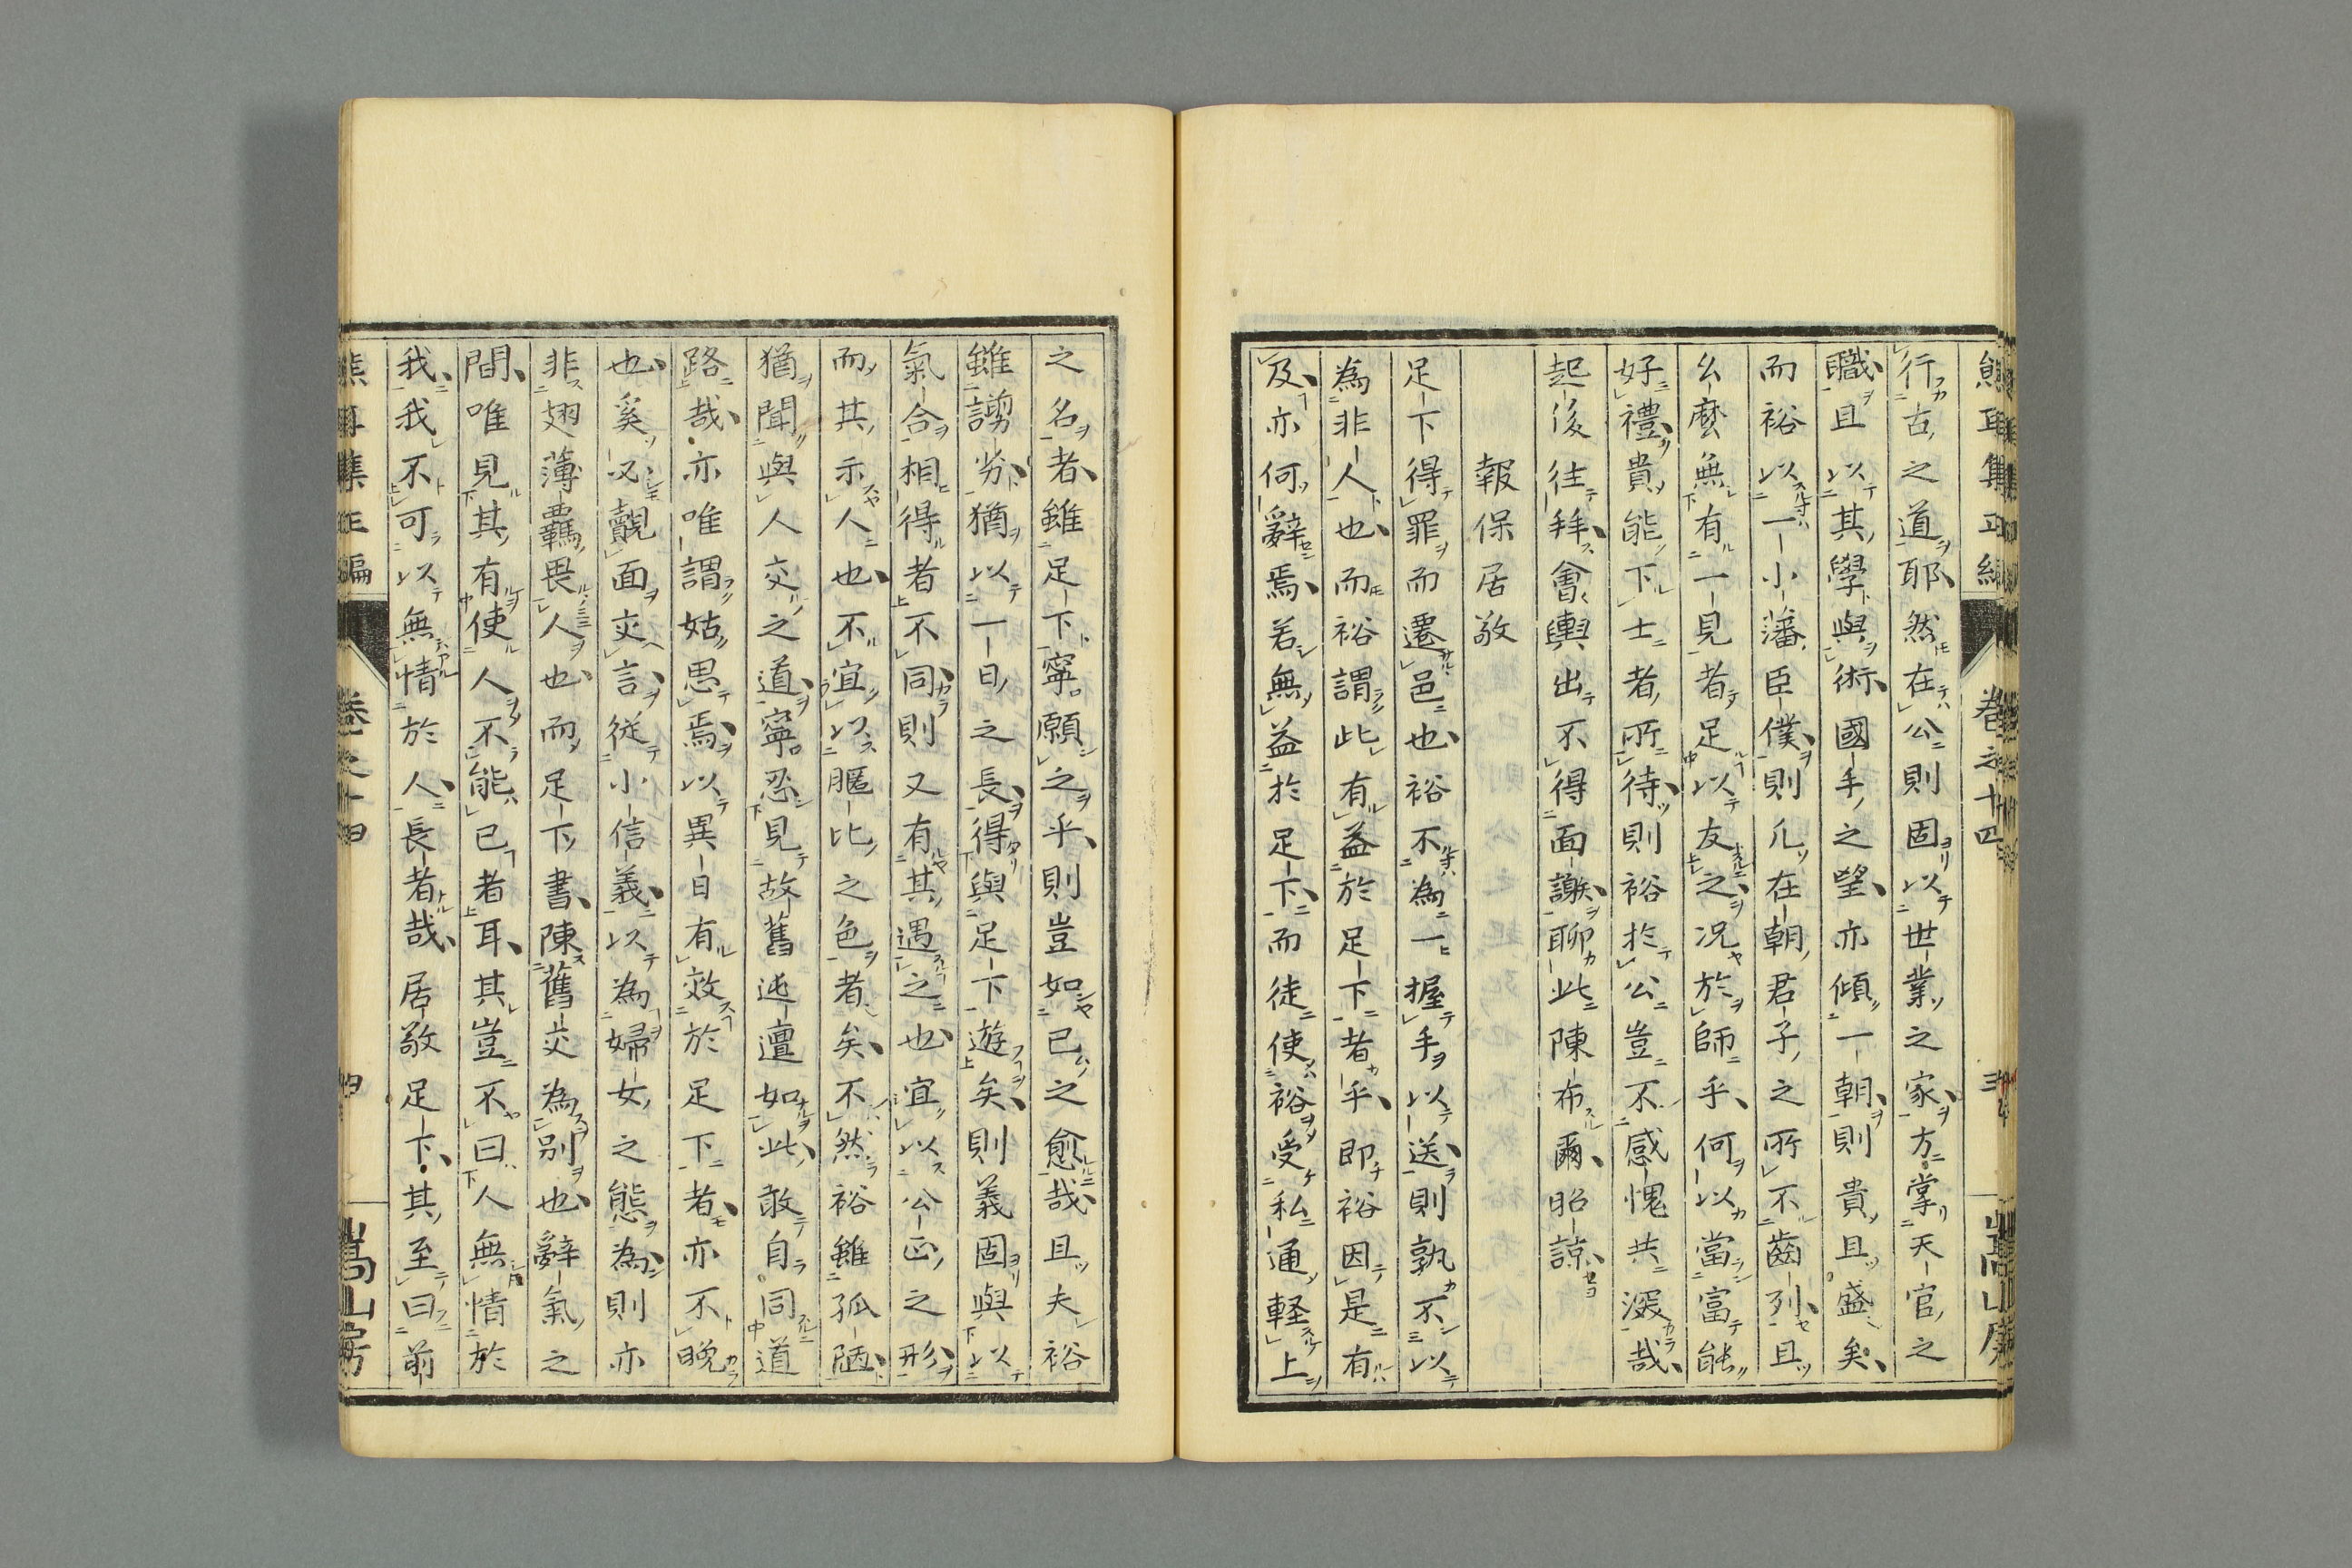 行古之道耶然在公則固以世業之家方掌天官之
職且以其學與術國手之望亦傾一朝則貴且盛矣
而裕以一小藩臣僕則凢在朝君子之所不齒列且
幺麼無有一見者足以友之况於師乎何以當富能
好禮貴能下士者所待則裕於公豈不感愧共深哉
起後往拜會輿出不得面謝聊此陳布爾昭諒
報保居敬
足下得罪而遷邑也裕不為一握手以送則孰不以
為非人也而裕謂此有益於足下者乎即裕因是有
及亦何辭焉若無益於足下而徒使裕受私通軽上
之名者雖足下寧願之乎則豈如已之愈哉且夫裕
雖謭劣猶以一日之長得與足下遊矣則義固與以
氣合相得者不同則又有其遇之也宜以公正之形
而其示人也不宜以䐟比之色者矣不然裕雖孤陋
猶聞與人交之道寧忍見故舊迍邅如此敢自同道
路哉亦唯謂姑思焉以異日有效於足下者亦不晚
也奚必靦面交言從小信義以為婦女之態為則亦
非翅薄羇畏人也而足下書陳舊交為別也辭氣之
間唯見其有使人不能已者耳其豈不曰人無情於
我我不可以無情於人長者哉居敬足下其至曰前
卷之十四
三
嵩山房